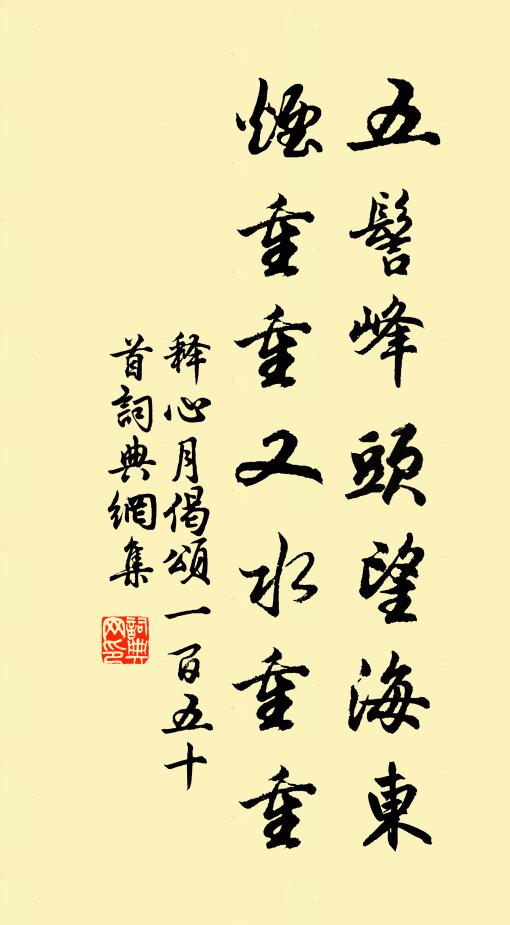 五髻峰頭望海東
煙重重又水重重
释心月偈頌一百五十
首詞典網集
詞典
网印